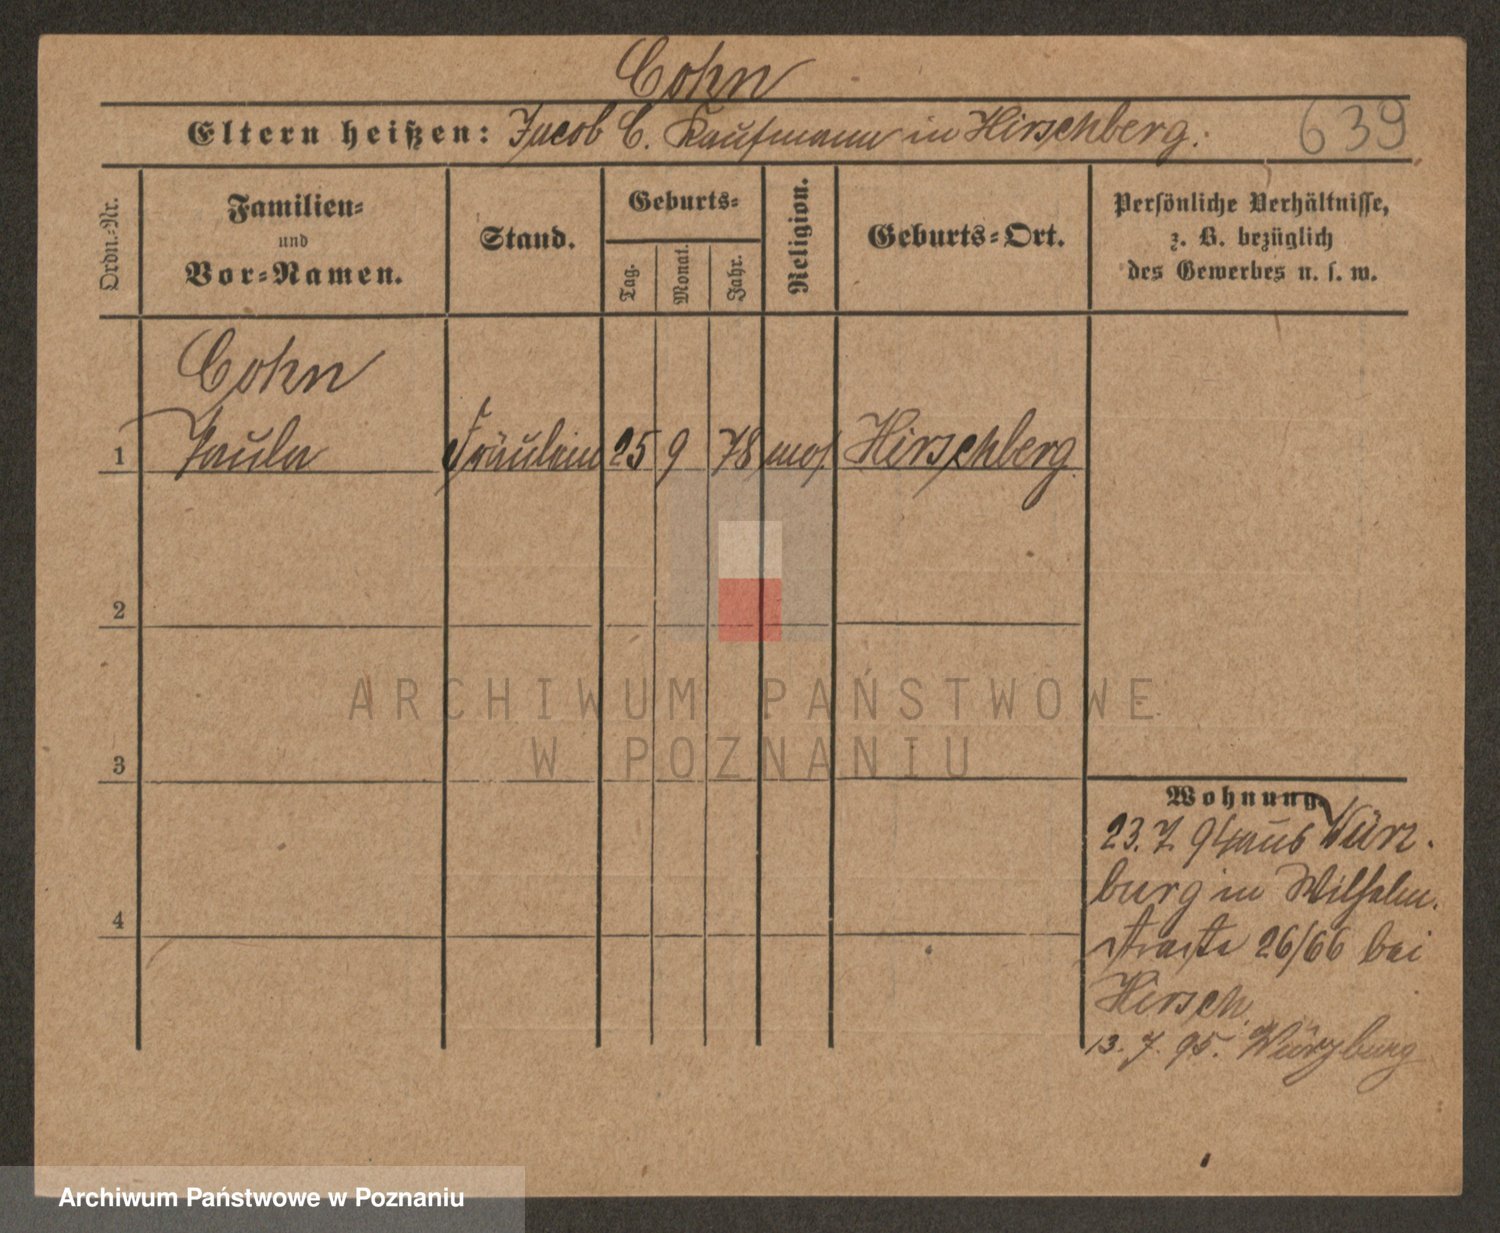 Cohn
Eltern heißen: Jacob C. Kaufmann in Hirschberg.
639
Ordn.-Nr.
Familien-
und
Vor-Namen.
Stand.
Geburts-
Tag.
Monat.
Jahr.
Religion.
Geburts-Ort.
Persönliche Verhältnisse,
z. B. bezüglich
des Gewerbes u. s. w.
Cohn
1 Paula Fräulein 25 9 78 mos Hirschberg
2
3
4
Wohnung.
23. 7. 94 aus Würz-
burg in Wilhelm-
straße 26/66 bei
Hirsch.
13. 7. 95. Würzburg
ARCHIWUM PAŃSTWOWE
W POZNANIU
Archiwum Państwowe w Poznaniu